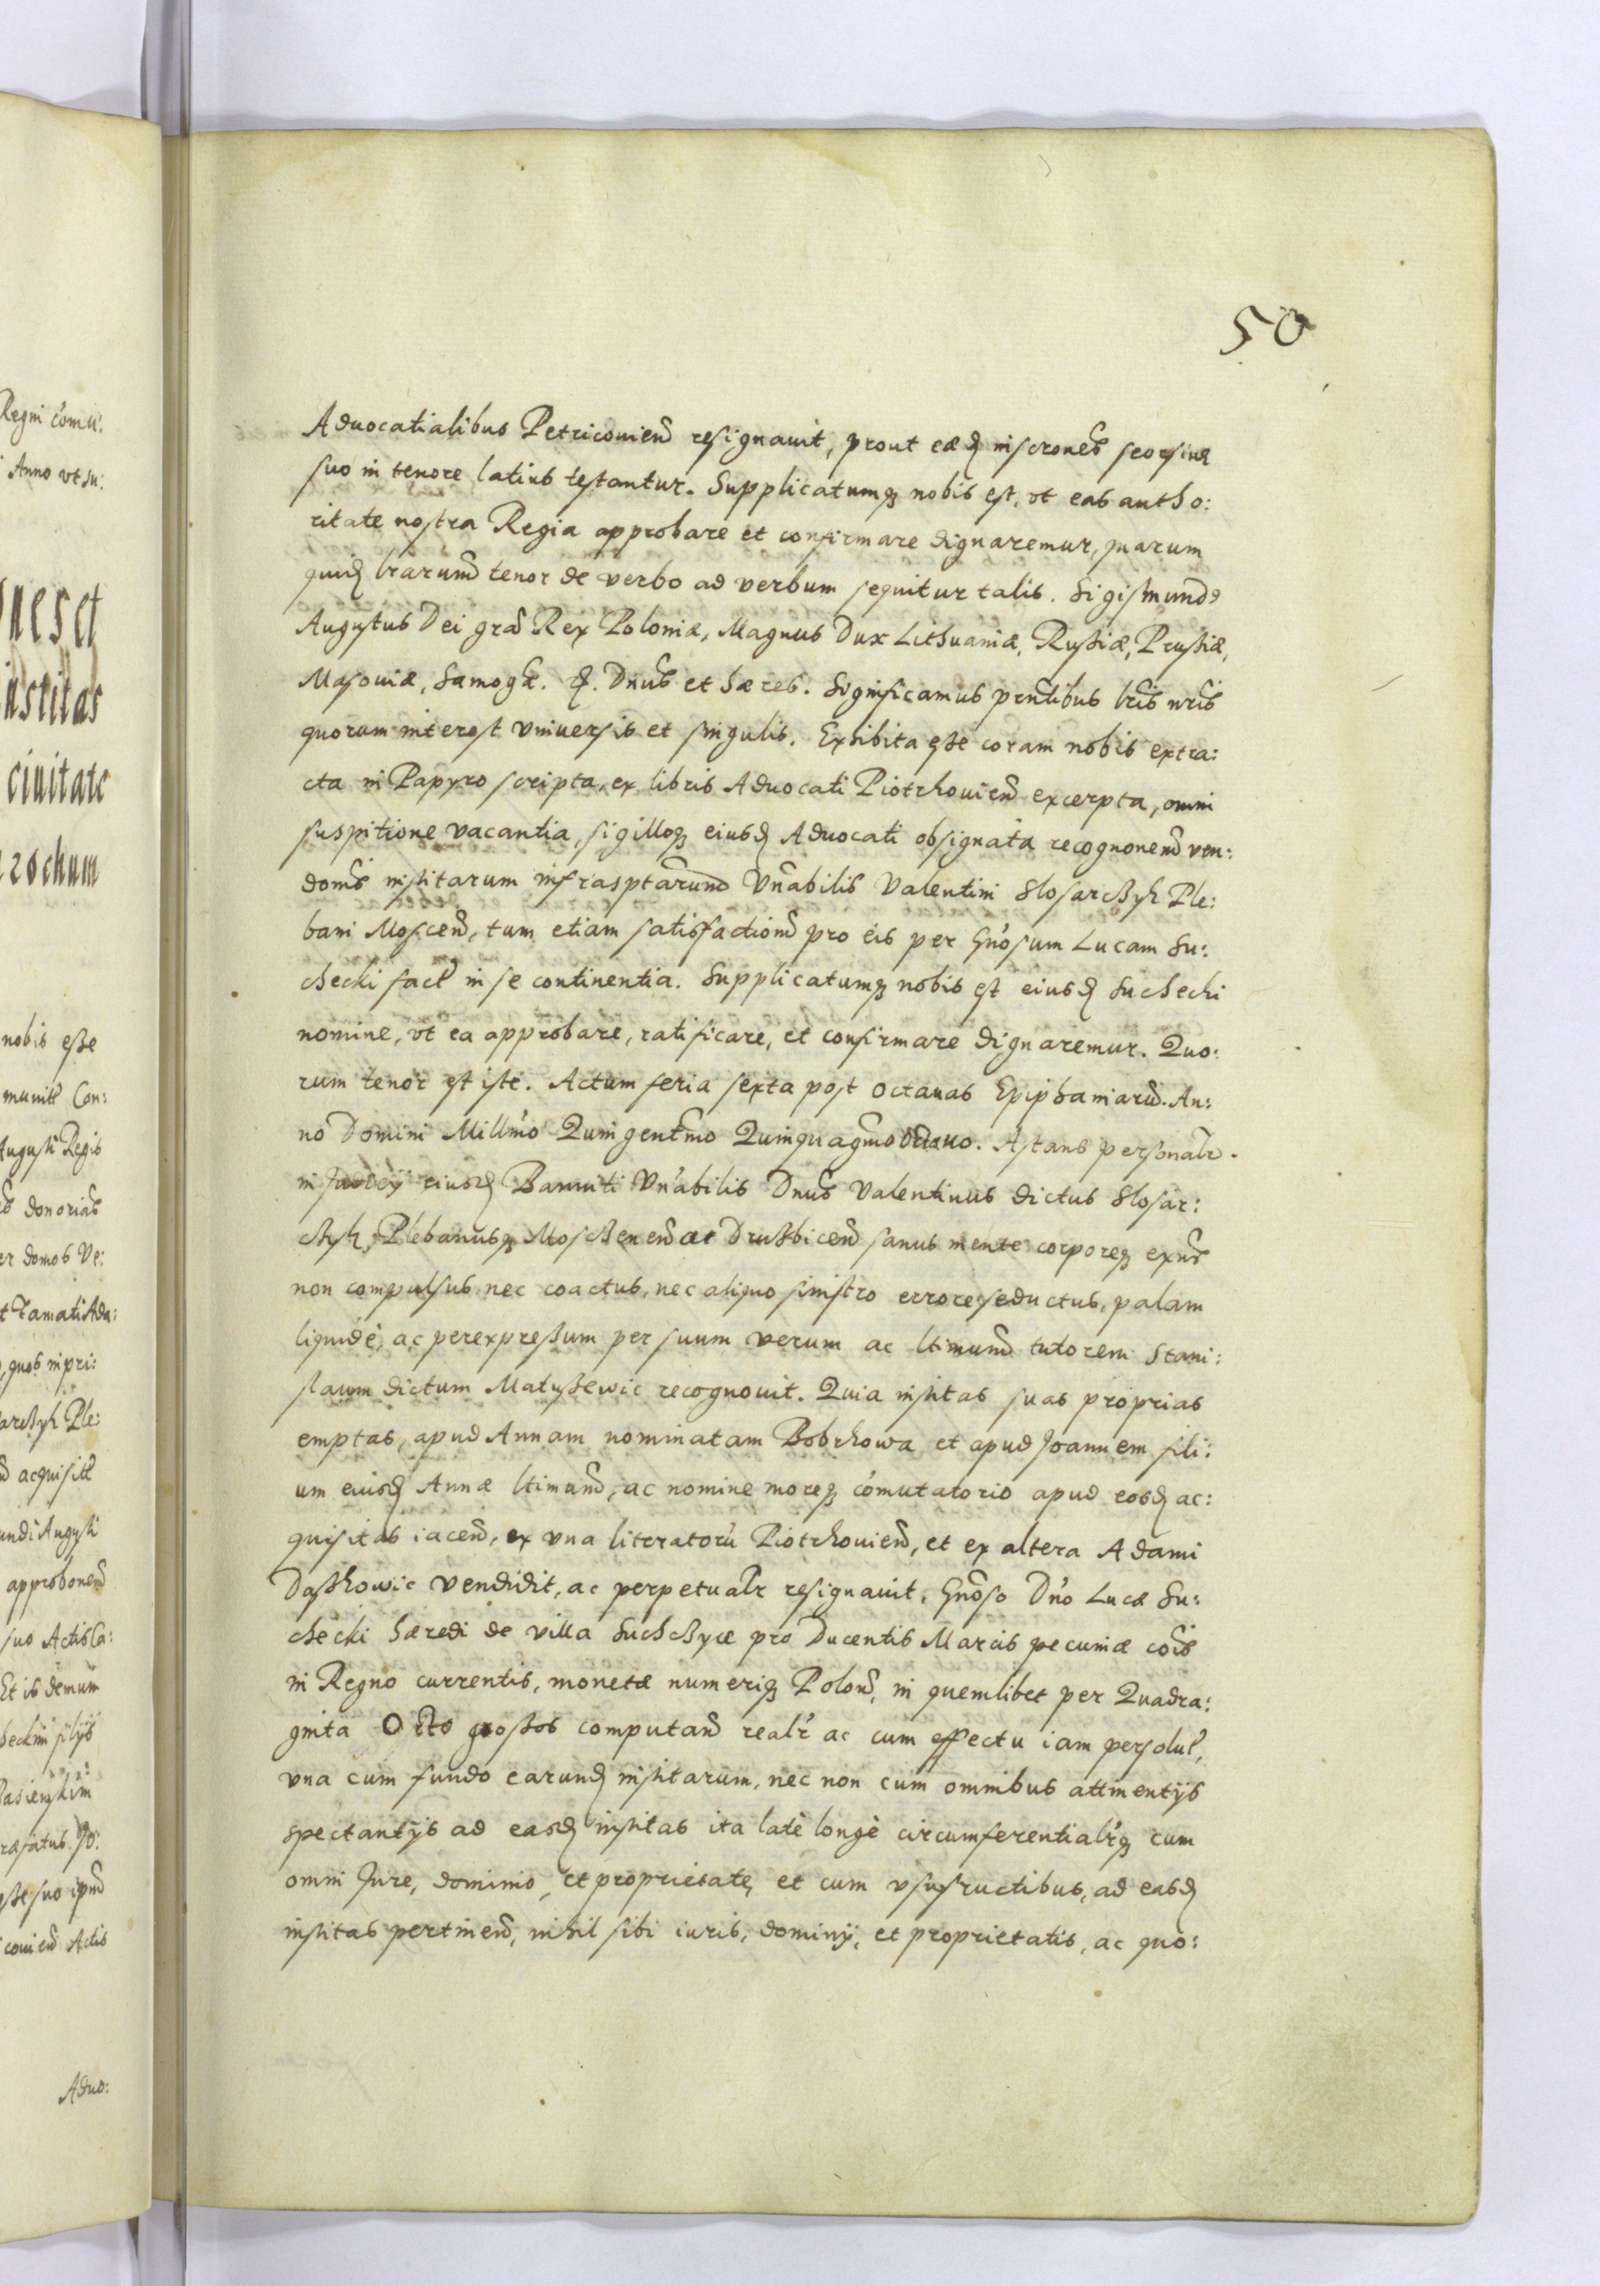 Regni comu:
Anno vt su:
nes et
institas
ciuitate
rochum
nobis esse
munitt Con:
Augusti Regis
donorias
er domos Ve:
t Tamati Ada:
, quos in pri:
arcżyk Ple:
acquisitt
undi Augusti
approbonend
suo Actis Ca:
Et is demum
checkim filijs
Pasienskim
ræfatus Jo:
psse suo ipm̃
couiend Actis
Aduo:
50
Aduocatialibus Petricouiend resignauit, prout eæd inscrones seorsiue
suo in tenore latius testantur. Supplicatumq nobis est, vt eas autho:
ritate nostra Regia approbare et confirmare dignaremur, quarum
quid lrarum tenor de verbo ad verbum sequitur talis. Sigismund9
Augustus Dei gra Rex Poloniæ, Magnus Dux Lithuaniæ, Russiæ, Prussiæ,
Masouiæ, Samogæ. &. Dnus et hæres. Significamus prntibus lris nris
quorum interest vniuersis et singulis. Exhibita esse coram nobis extra:
cta in Papyro scripta, ex libris Aduocati Piotrkouiend excerpta, omni
suspitione vacantia, sigilloq eiusd Aduocati obsignata recognonend ven:
donis institarum infrasptarum Vnabilis Valentini Slosarcżyk Ple:
bani Moscend, tum etiam satisfactiond pro eis per Gnosum Lucam Su:
checki fact in se continentia. Supplicatumq nobis est eiusd Suchecki
nomine, vt ea approbare, ratificare, et confirmare dignaremur. Quo:
rum tenor est iste. Actum feria sexta post octauas Epiphaniarum. An:
no Domini Millmo Quingentmo Quinquagmo octauo. Astans personalr
in Judicij eiusd Banniti Vnabilis Dnus Valentinus dictus Slosar:
cżyk, Plebanusq Moscżenend ac Drużbicend sanus mente corporeq exns
non compulsus nec coactus, nec aliquo sinistro errore seductus, palam
liquidè, ac per expressum per suum verum ac ltimum tutorem Stani:
slaum dictum Matyssewic recognouit. Quia institas suas proprias
emptas, apud Annam nominatam Bobrkowa et apud Joannem fili:
um eiusd Annæ ltimum, ac nomine moreq comutatorio apud eosd ac:
quisitas iacend, ex vna literatoru Piotrkouiend, et ex altera Adami
Dasskowic vendidit, ac perpetualr resignauit, Gnoso Dno Lucæ Su:
checki hæredi de villa Suchcżyce pro Ducentis Marcis pecuniæ cois
in Regno currentis, monetæ numeriq Polond, in quemlibet per Quadra:
ginta Octo grossos computand realr ac cum effectu iam persolut,
vna cum fundo earund institarum, nec non cum omnibus attinentijs
spectantijs ad easd institas ita latè longè circumferentialrq cum
omni Jure, dominio, et proprietate, et cum vsufructibus, ad easd
institas pertinend, nihil sibi iuris, dominij, et proprietatis, ac quo: